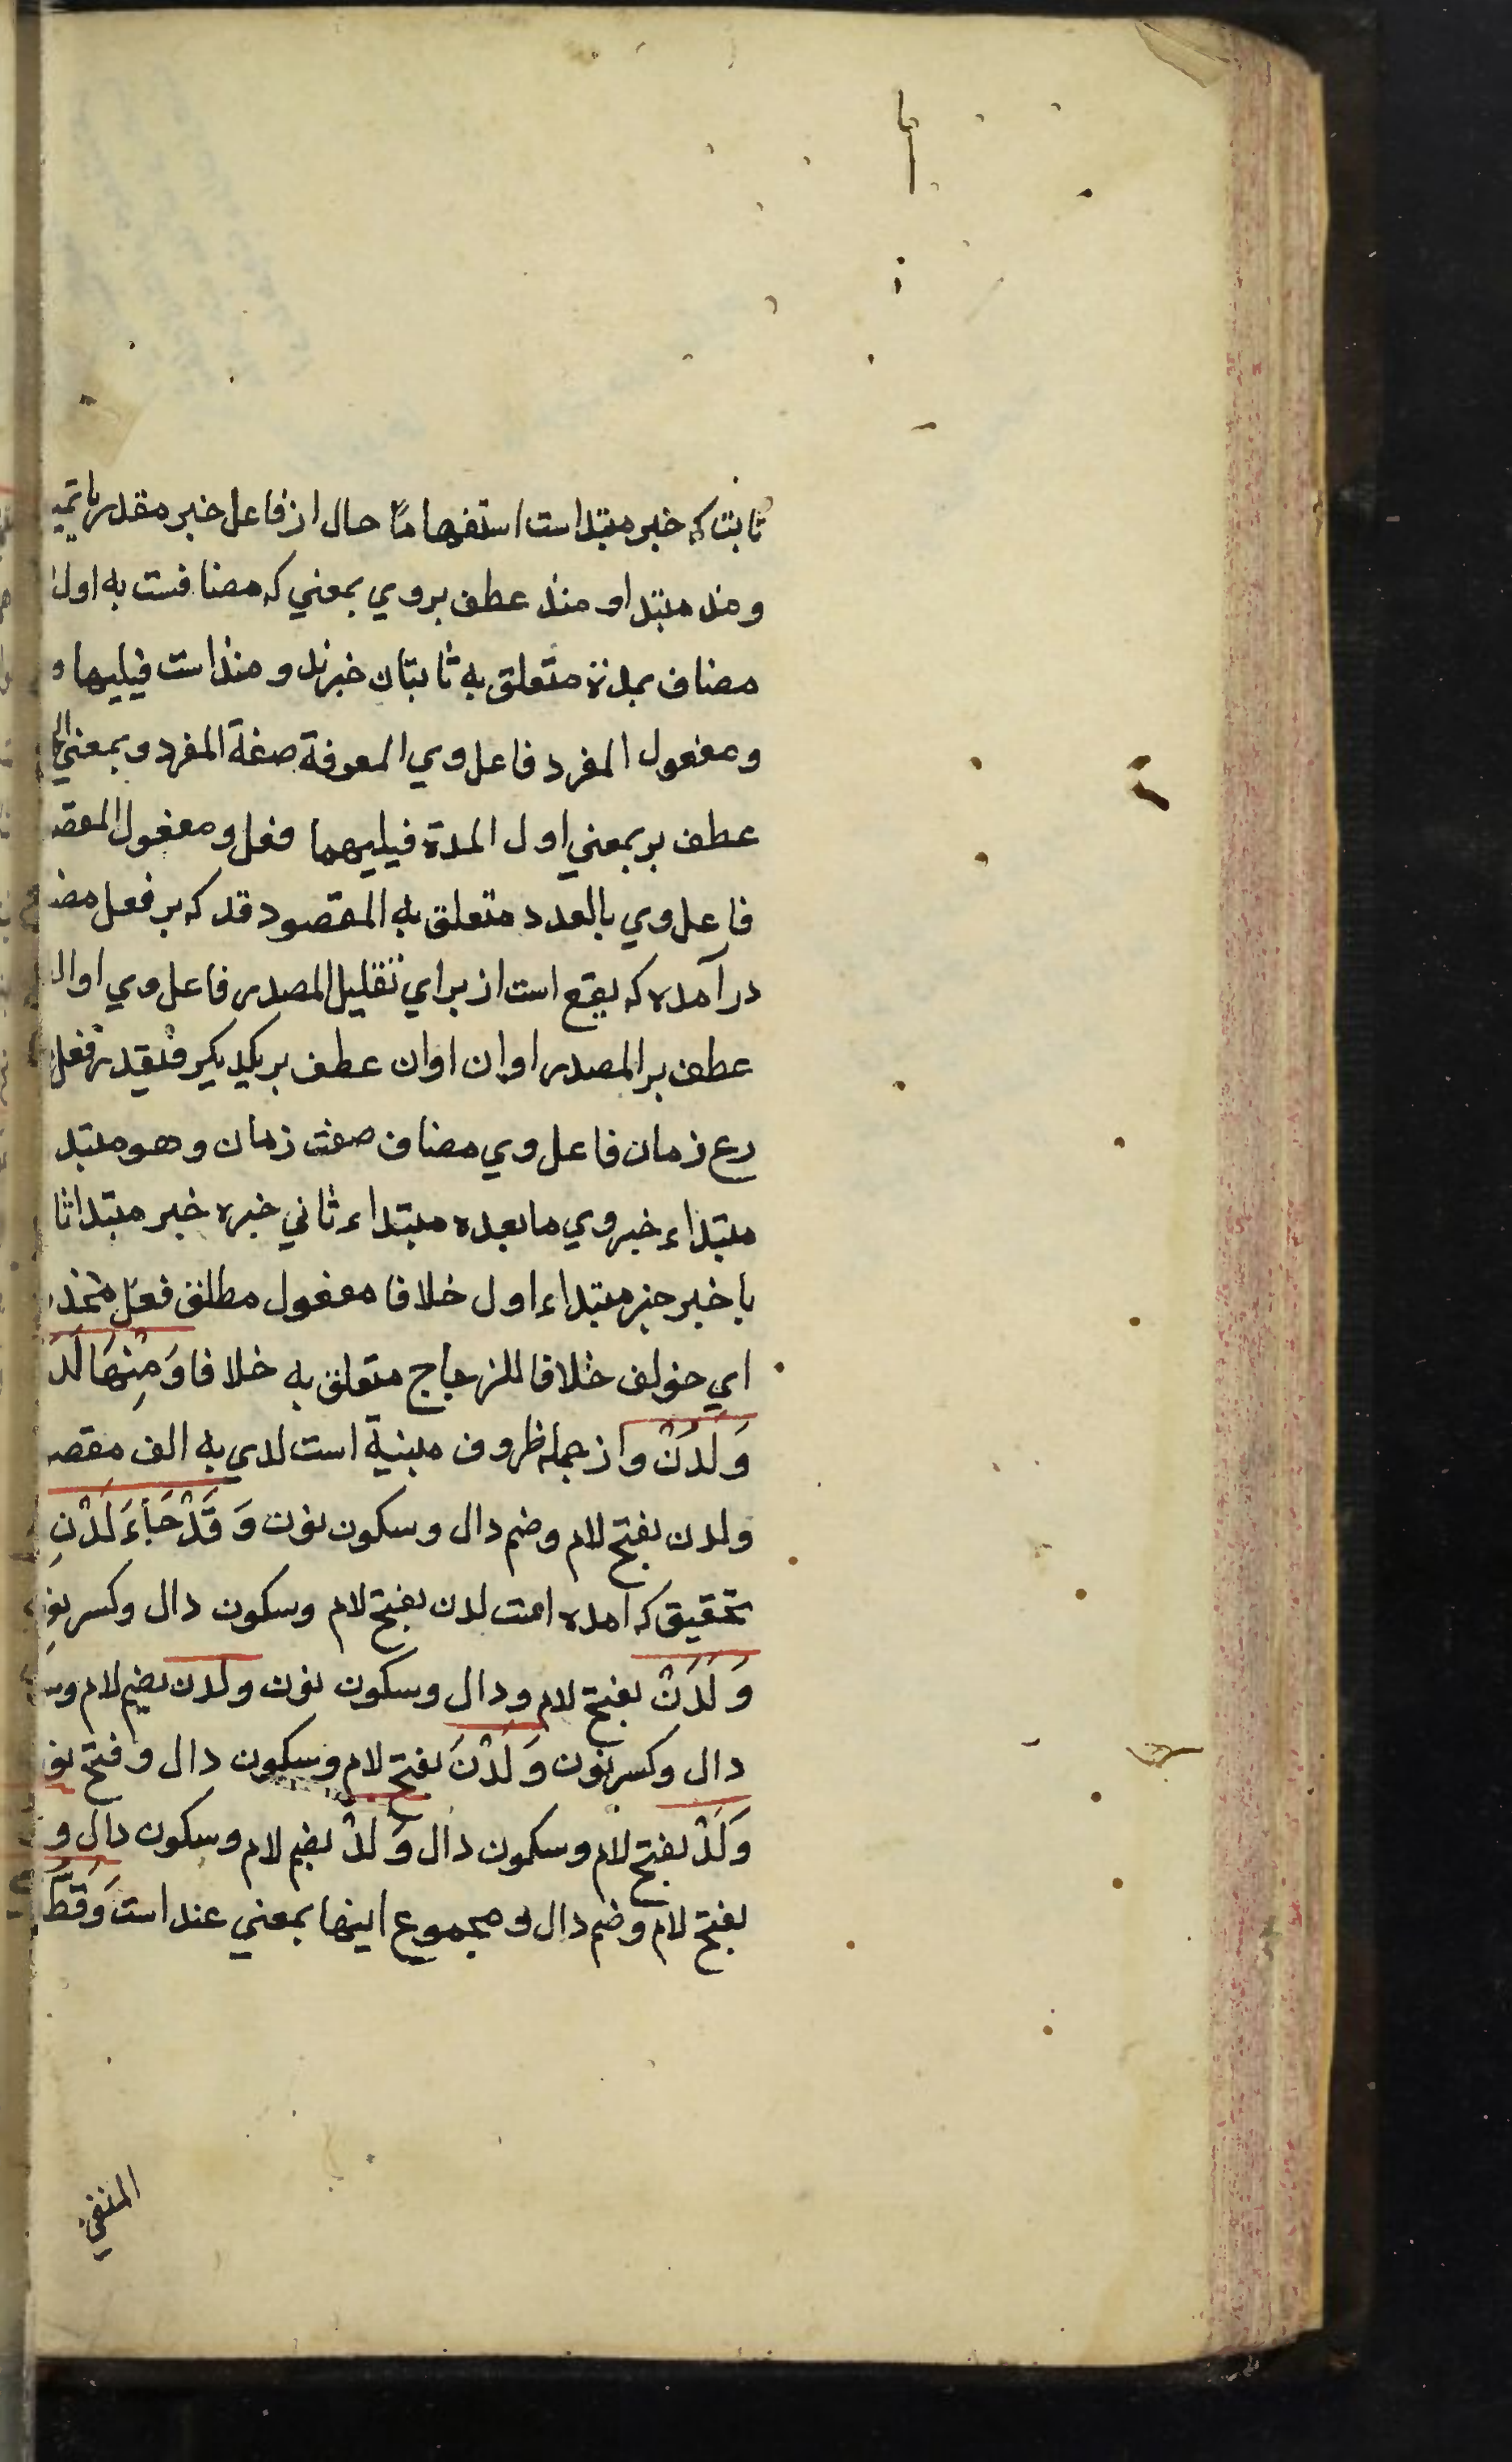 ثابت که خبر مبتداست استفهاما حال از فاعل خبر مقدر یا تمیـ
و مذ مبتدا و منذ عطف بر وي بمعني که مضافست به اول
مضاف بمدة متعلق به ثابتان خبرند و منذ است فيليها و
و مفعول المفرد فاعل وي المعرفة صفة المفرد و بمعني
عطف بر بمعني اول المدة فيليهما فعل و مفعول المقصـ
فاعل وي بالعدد متعلق به المقصود قد که بر فعل مضـ
درآمده که يقع است از براي تقليل المصدر فاعل وي او ال
عطف بر المصدر او ان او ان عطف بر يکديکر فيقدر فعل
زمان فاعل وي مضاف صفت زمان و هو مبتد
مبتداء خبر وي ما بعده مبتداء ثاني خبره خبر مبتدا ثا
با خبر خبر مبتداء اول خلافا مفعول مطلق فعل محذ
اي خولف خلافا للزجاج متعلق به خلافا وَمِنْهَا لَدَ
وَلَدُنْ و از جمله ظروف مبنية است لدي به الف مقصـ
ولدن بفتح لام و ضم دال و سکون نون وَقَدْ جَاءَ لَدْنِ
تحقيق که امده است لدن بفتح لام و سکون دال و کسر نو
وَلَدَنْ بفتح لام و دال و سکون نون ولدن بضم لام و سـ
دال و کسر نون وَلَدْنَ بفتح لام و سکون دال و فتح نو
وَلَدْ بفتح لام و سکون دال وَلُدْ بضم لام و سکون دال و
بفتح لام و ضم دال و مجموع اينها بمعني عند است وَقَطُّ
المنفي